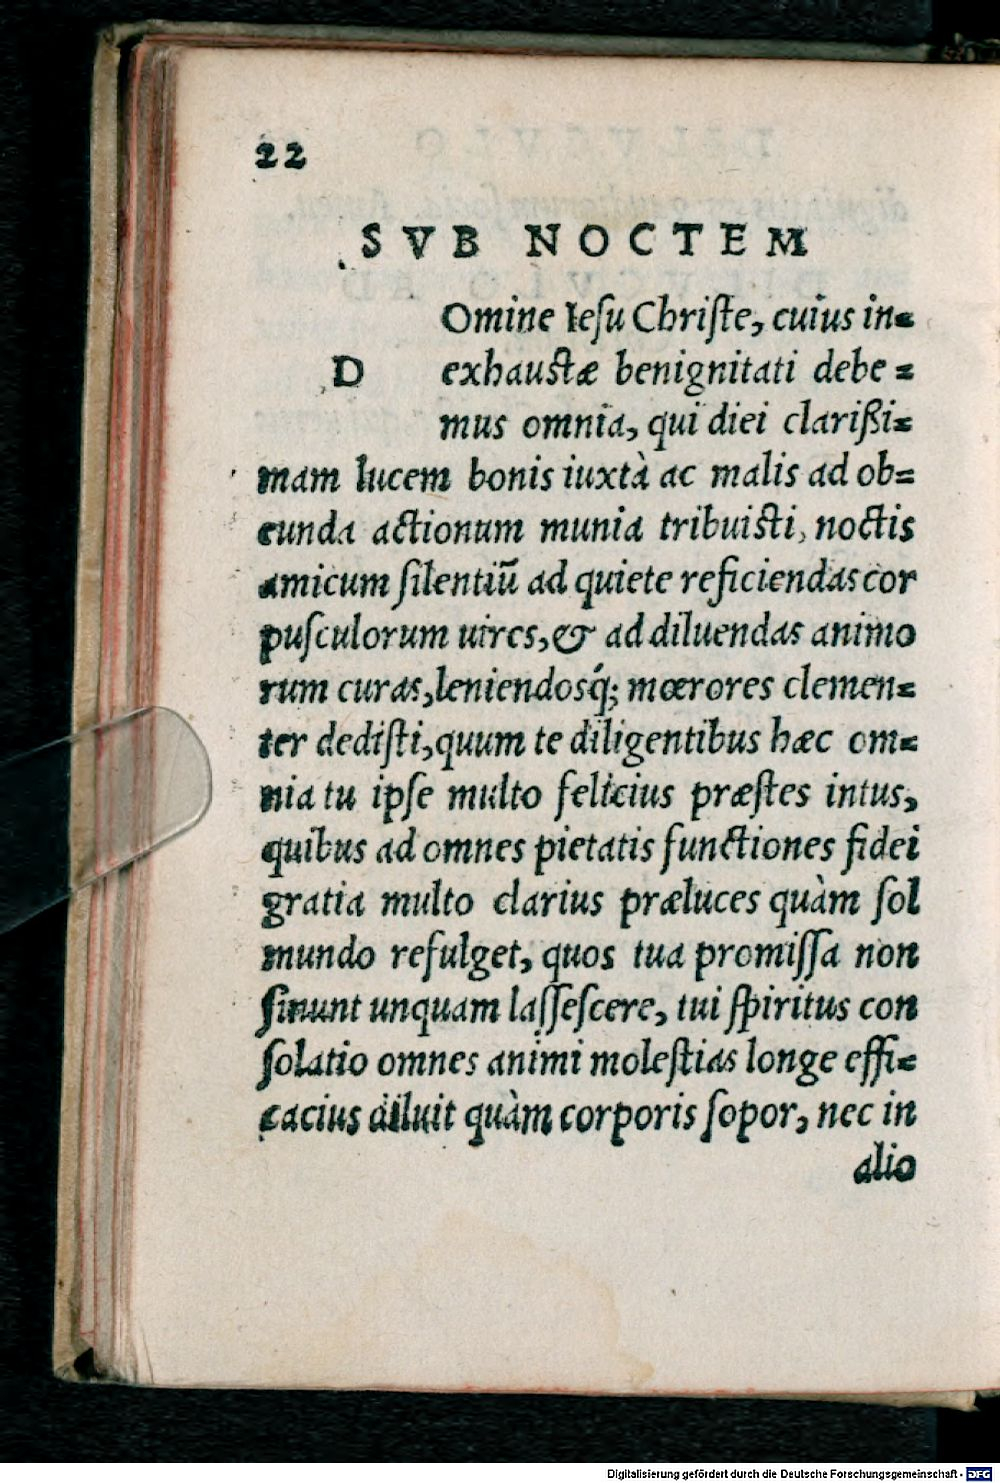 22
SVB NOCTEM
Omine Iesu Christe, cuius in=
D exhaustæ benignitati debe=
mus omnia, qui diei clarißi=
mam lucem bonis iuxtà ac malis ad ob=
eunda actionum munia tribuisti, noctis
amicum silentiũ ad quiete reficiendas cor
pusculorum uires, & ad diluendas animo
rum curas, leniendosq́; mœrores clemen=
ter dedisti, quum te diligentibus hæc om=
nia tu ipse multo felicius præstes intus,
quibus ad omnes pietatis functiones fidei
gratia multo clarius præluces quàm sol
mundo refulget, quos tua promissa non
sinunt unquam lassescere, tui spiritus con
solatio omnes animi molestias longe effi=
cacius diluit quàm corporis sopor, nec in
alio
Digitalisierung gefördert durch die Deutsche Forschungsgemeinschaft - DFG